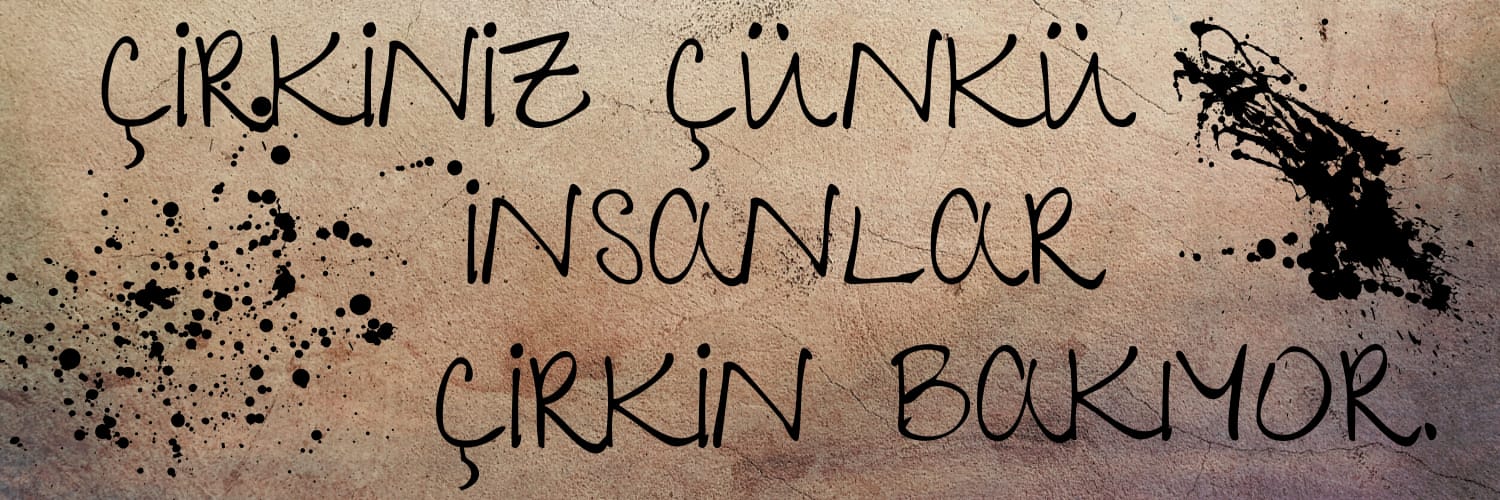 ÇİRKİNİZ ÇÜNKÜ
İNSANLAR
ÇİRKİN BAKIYOR.